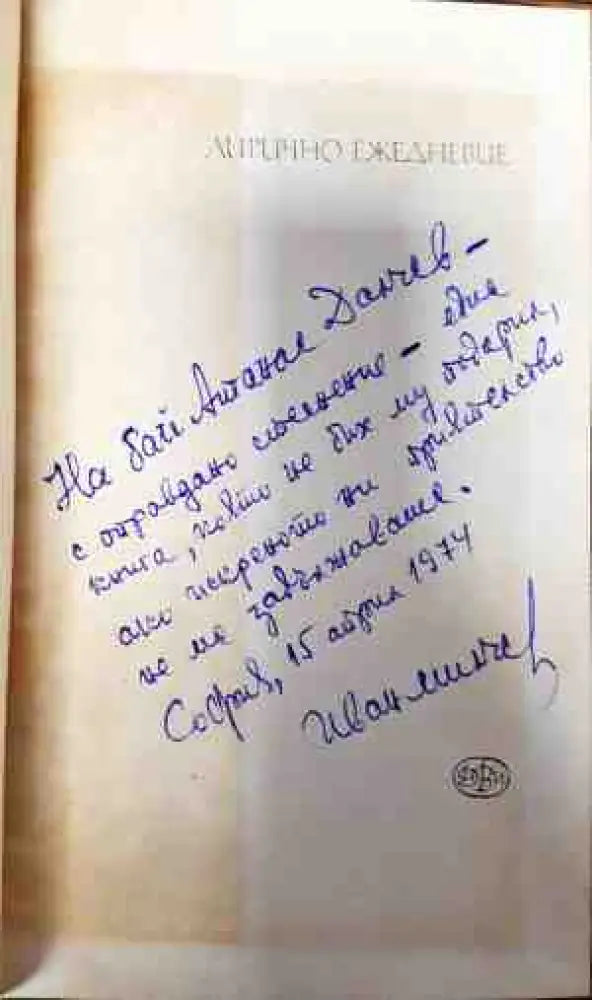 ЛИРИЧНО ЕЖЕДНЕВИЕ
На бай Атанас Данчев –
с оправдано стеснение – една
книга, която не бих му подарил,
ако искреното ни приятелство
не ме задължаваше.
София, 15 април 1974
Иван Минчев